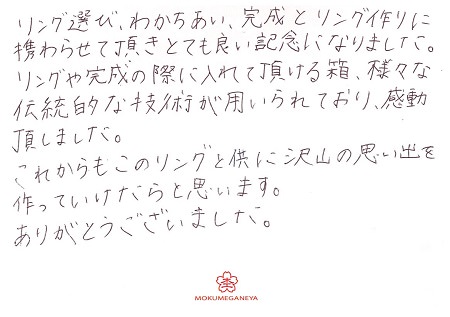 リング選び、わかちあい、完成とリング作りに
携わらせて頂きとても良い記念になりました。
リングや完成の際に入れて頂ける箱、様々な
伝統的な技術が用いられており、感動
頂しました。
これからもこのリングと供に沢山の思い出を
作っていけたらと思います。
ありがとうございました。
MOKUMEGANEYA